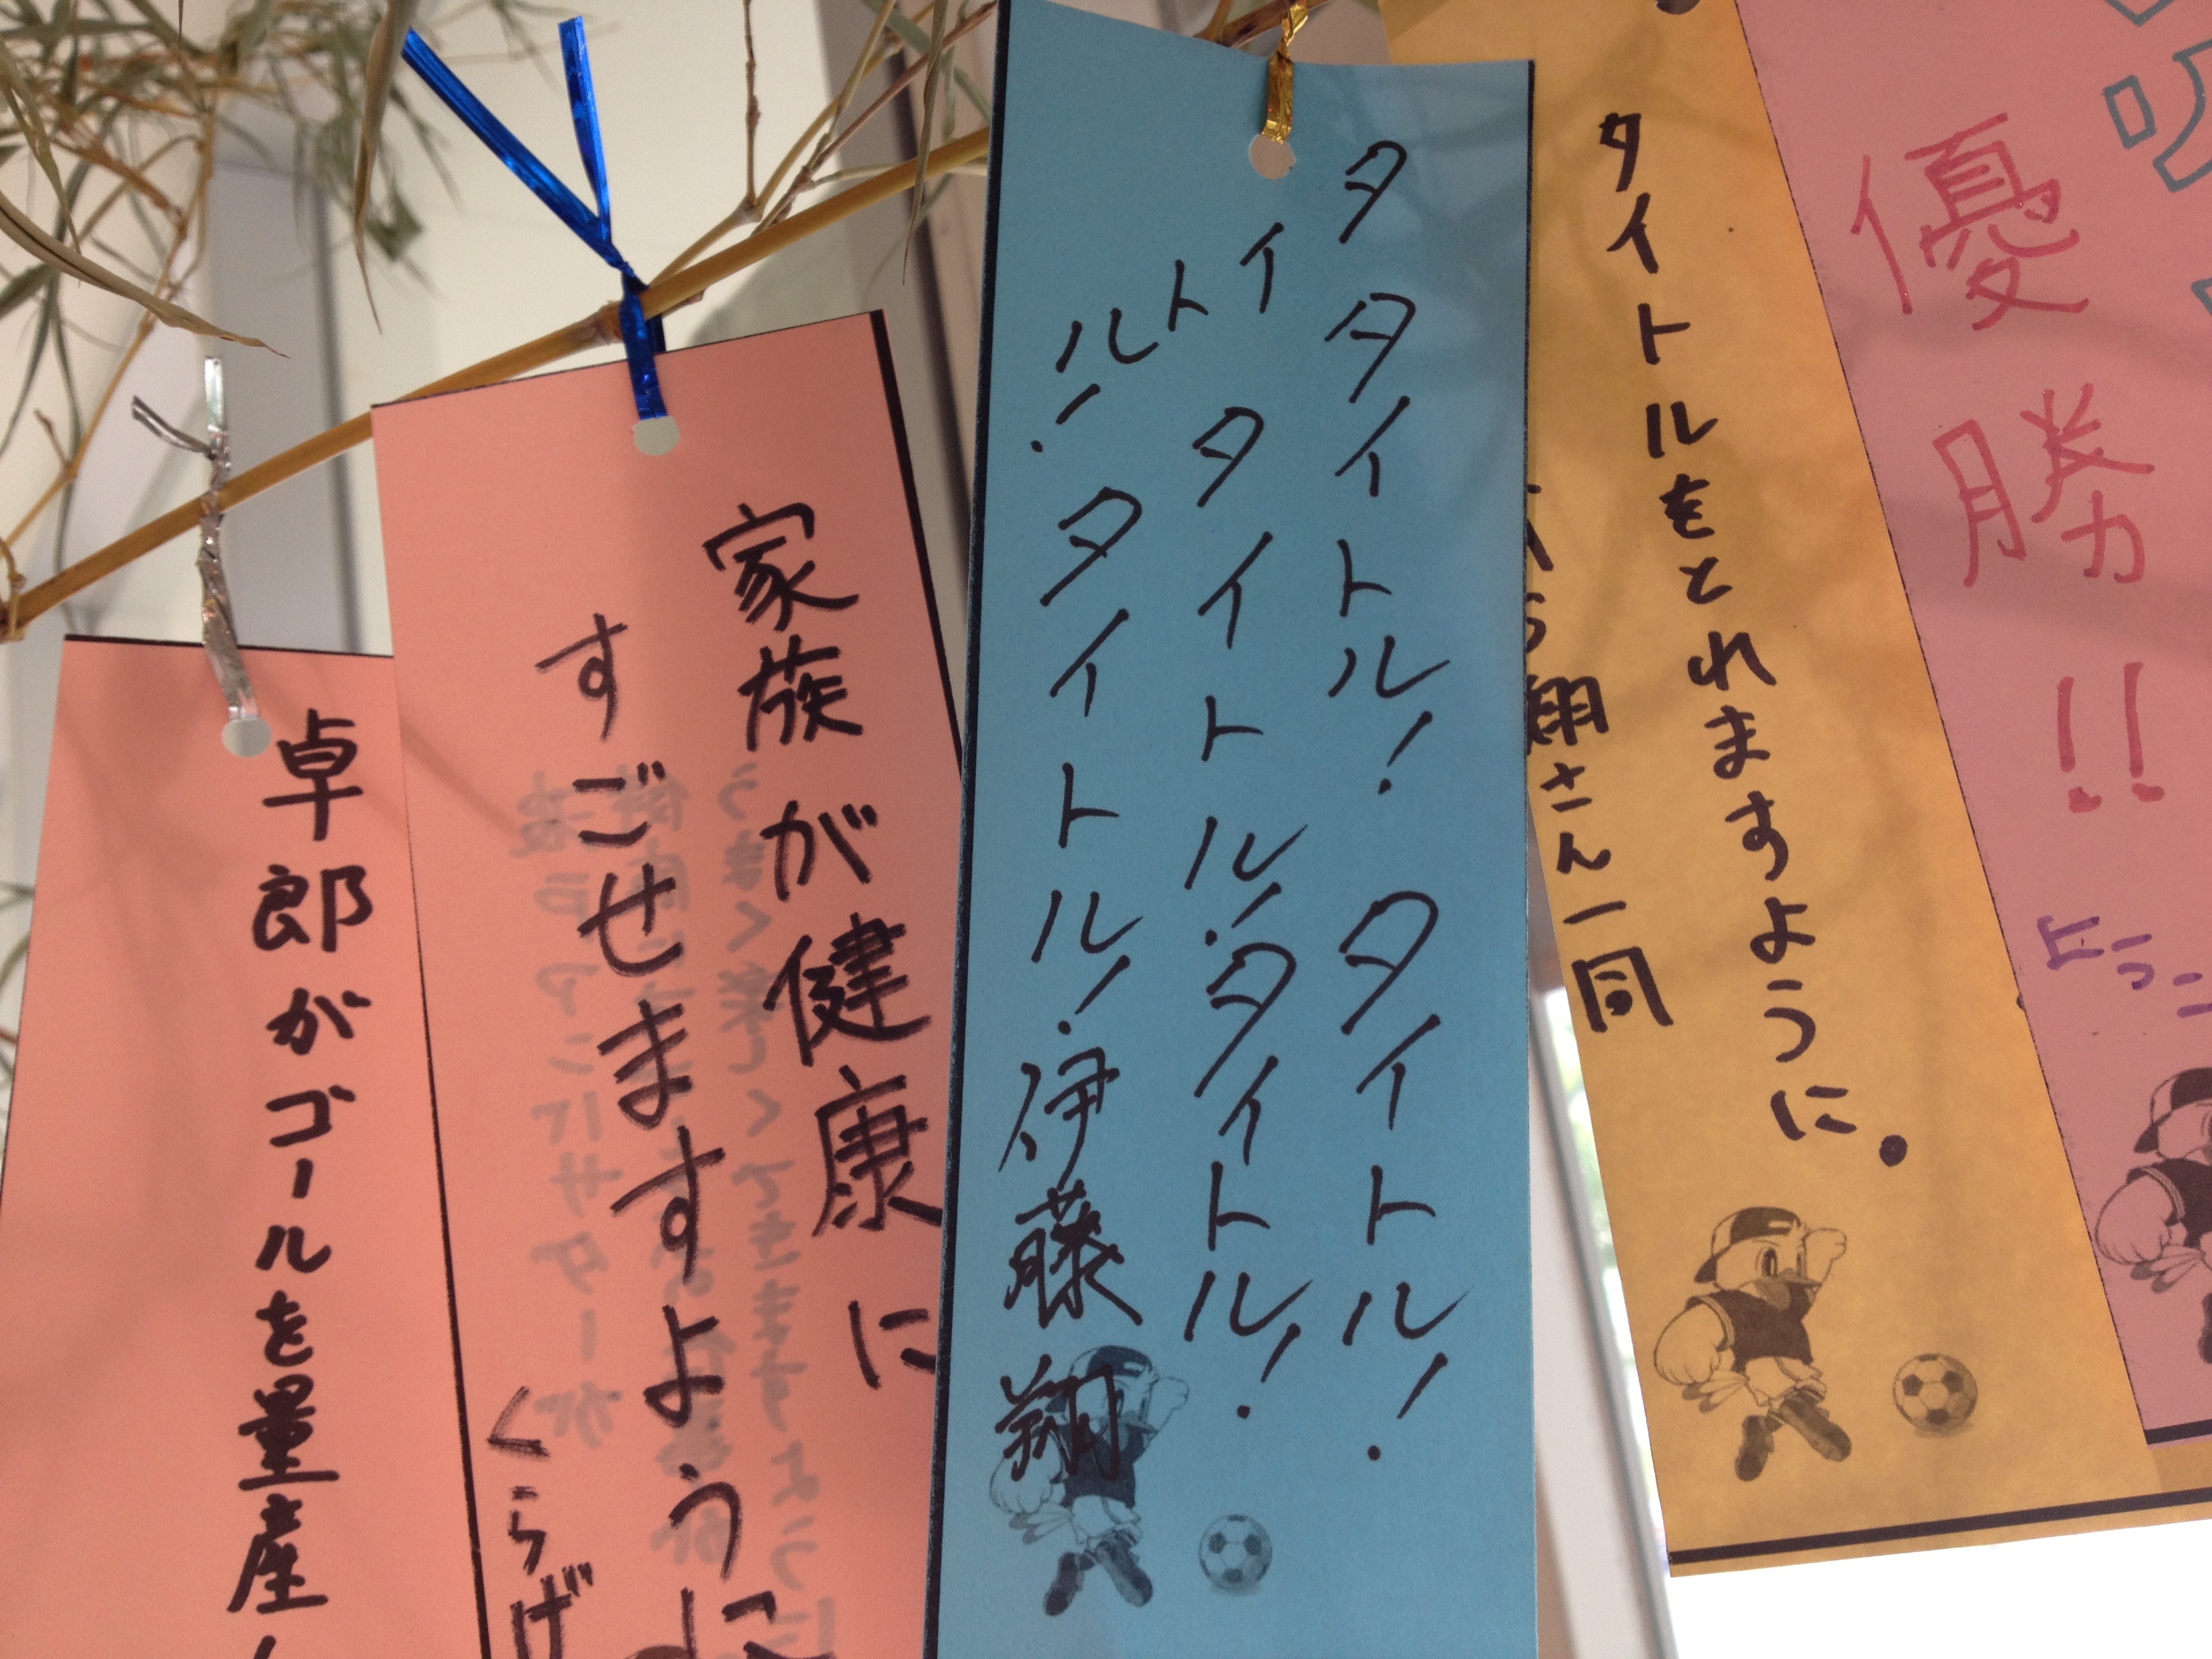 優勝!!
タイトルをとれますように。
翔さん一同
タイトル!
タイトル!タイトル!
タイトル!タイトル!
タイトル!伊藤翔
家族が健康に
すごせますように
くらげ
卓郎がゴールを量産